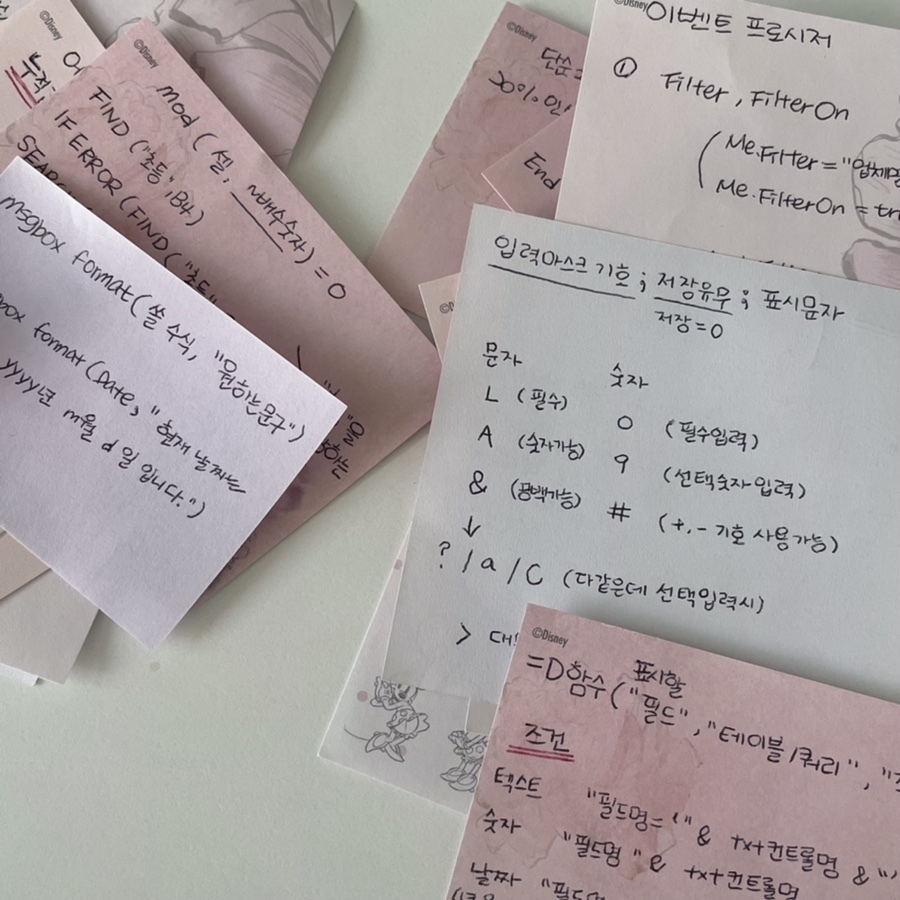 ©Disney
누적
©Disney
mod ( 셀, n배수숫자) = 0
FIND ("초등", B4)
IF ERROR (FIND ( "초등"
msgbox format( 쓸 수식, "원하는문구")
format (Date, "현재 날짜는
yyyy년 m월 d 일 입니다.")
©Disney
단순
20% 인
End
©Disney
이벤트 프로시저
① Filter, FilterOn
Me.Filter = "업체명
Me.FilterOn = tr
입력마스크 기호 ; 저장유무 ; 표시문자
저장=0
문자 숫자
L (필수) 0 (필수입력)
A (숫자가능) 9 (선택숫자입력)
& (공백가능) # (+, - 기호 사용가능)
↓
? / a / C (다같은데 선택입력시)
>
©Disney
표시할
=D함수 ("필드", "테이블/쿼리", "
조건
텍스트 "필드명= '" & txt컨트롤명 & "'"
숫자 "필드명 " & txt컨트롤명
날짜 "필드명